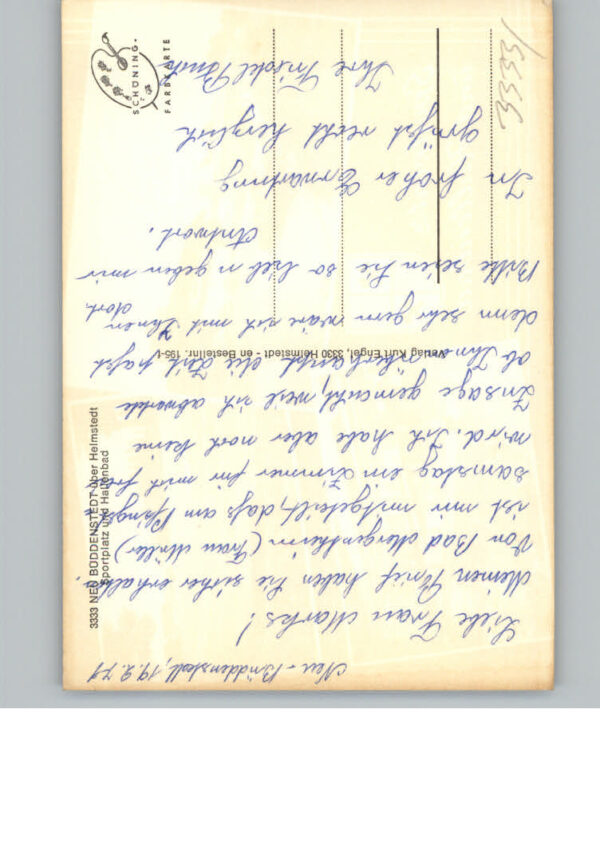 Neu-Büddenstedt, 19.2.71
Liebe Frau Marks!
Meinen Brief haben Sie sicher erhalten.
Von Bad Mergentheim (Frau Müller)
ist mir mitgeteilt, daß am Pfingst-
samstag ein Zimmer für mich frei
wird. Ich habe aber noch keine
Zusage gemacht, weil ich abwarte
ob Ihnen überhaupt die Zeit paßt
denn sehr gern wäre ich mit Ihnen
dort.
Bitte seien Sie so lieb u geben mir
Antwort.
In froher Erwartung
grüßt recht herzlich
Ihre Friedel
3333 NEU BÜDDENSTEDT über Helmstedt
Sportplatz und Hallenbad
Verlag Kurt Engel, 3330 Helmstedt - en Bestellnr. 195-I
SCHÖNING-
FARBKARTE
3333/